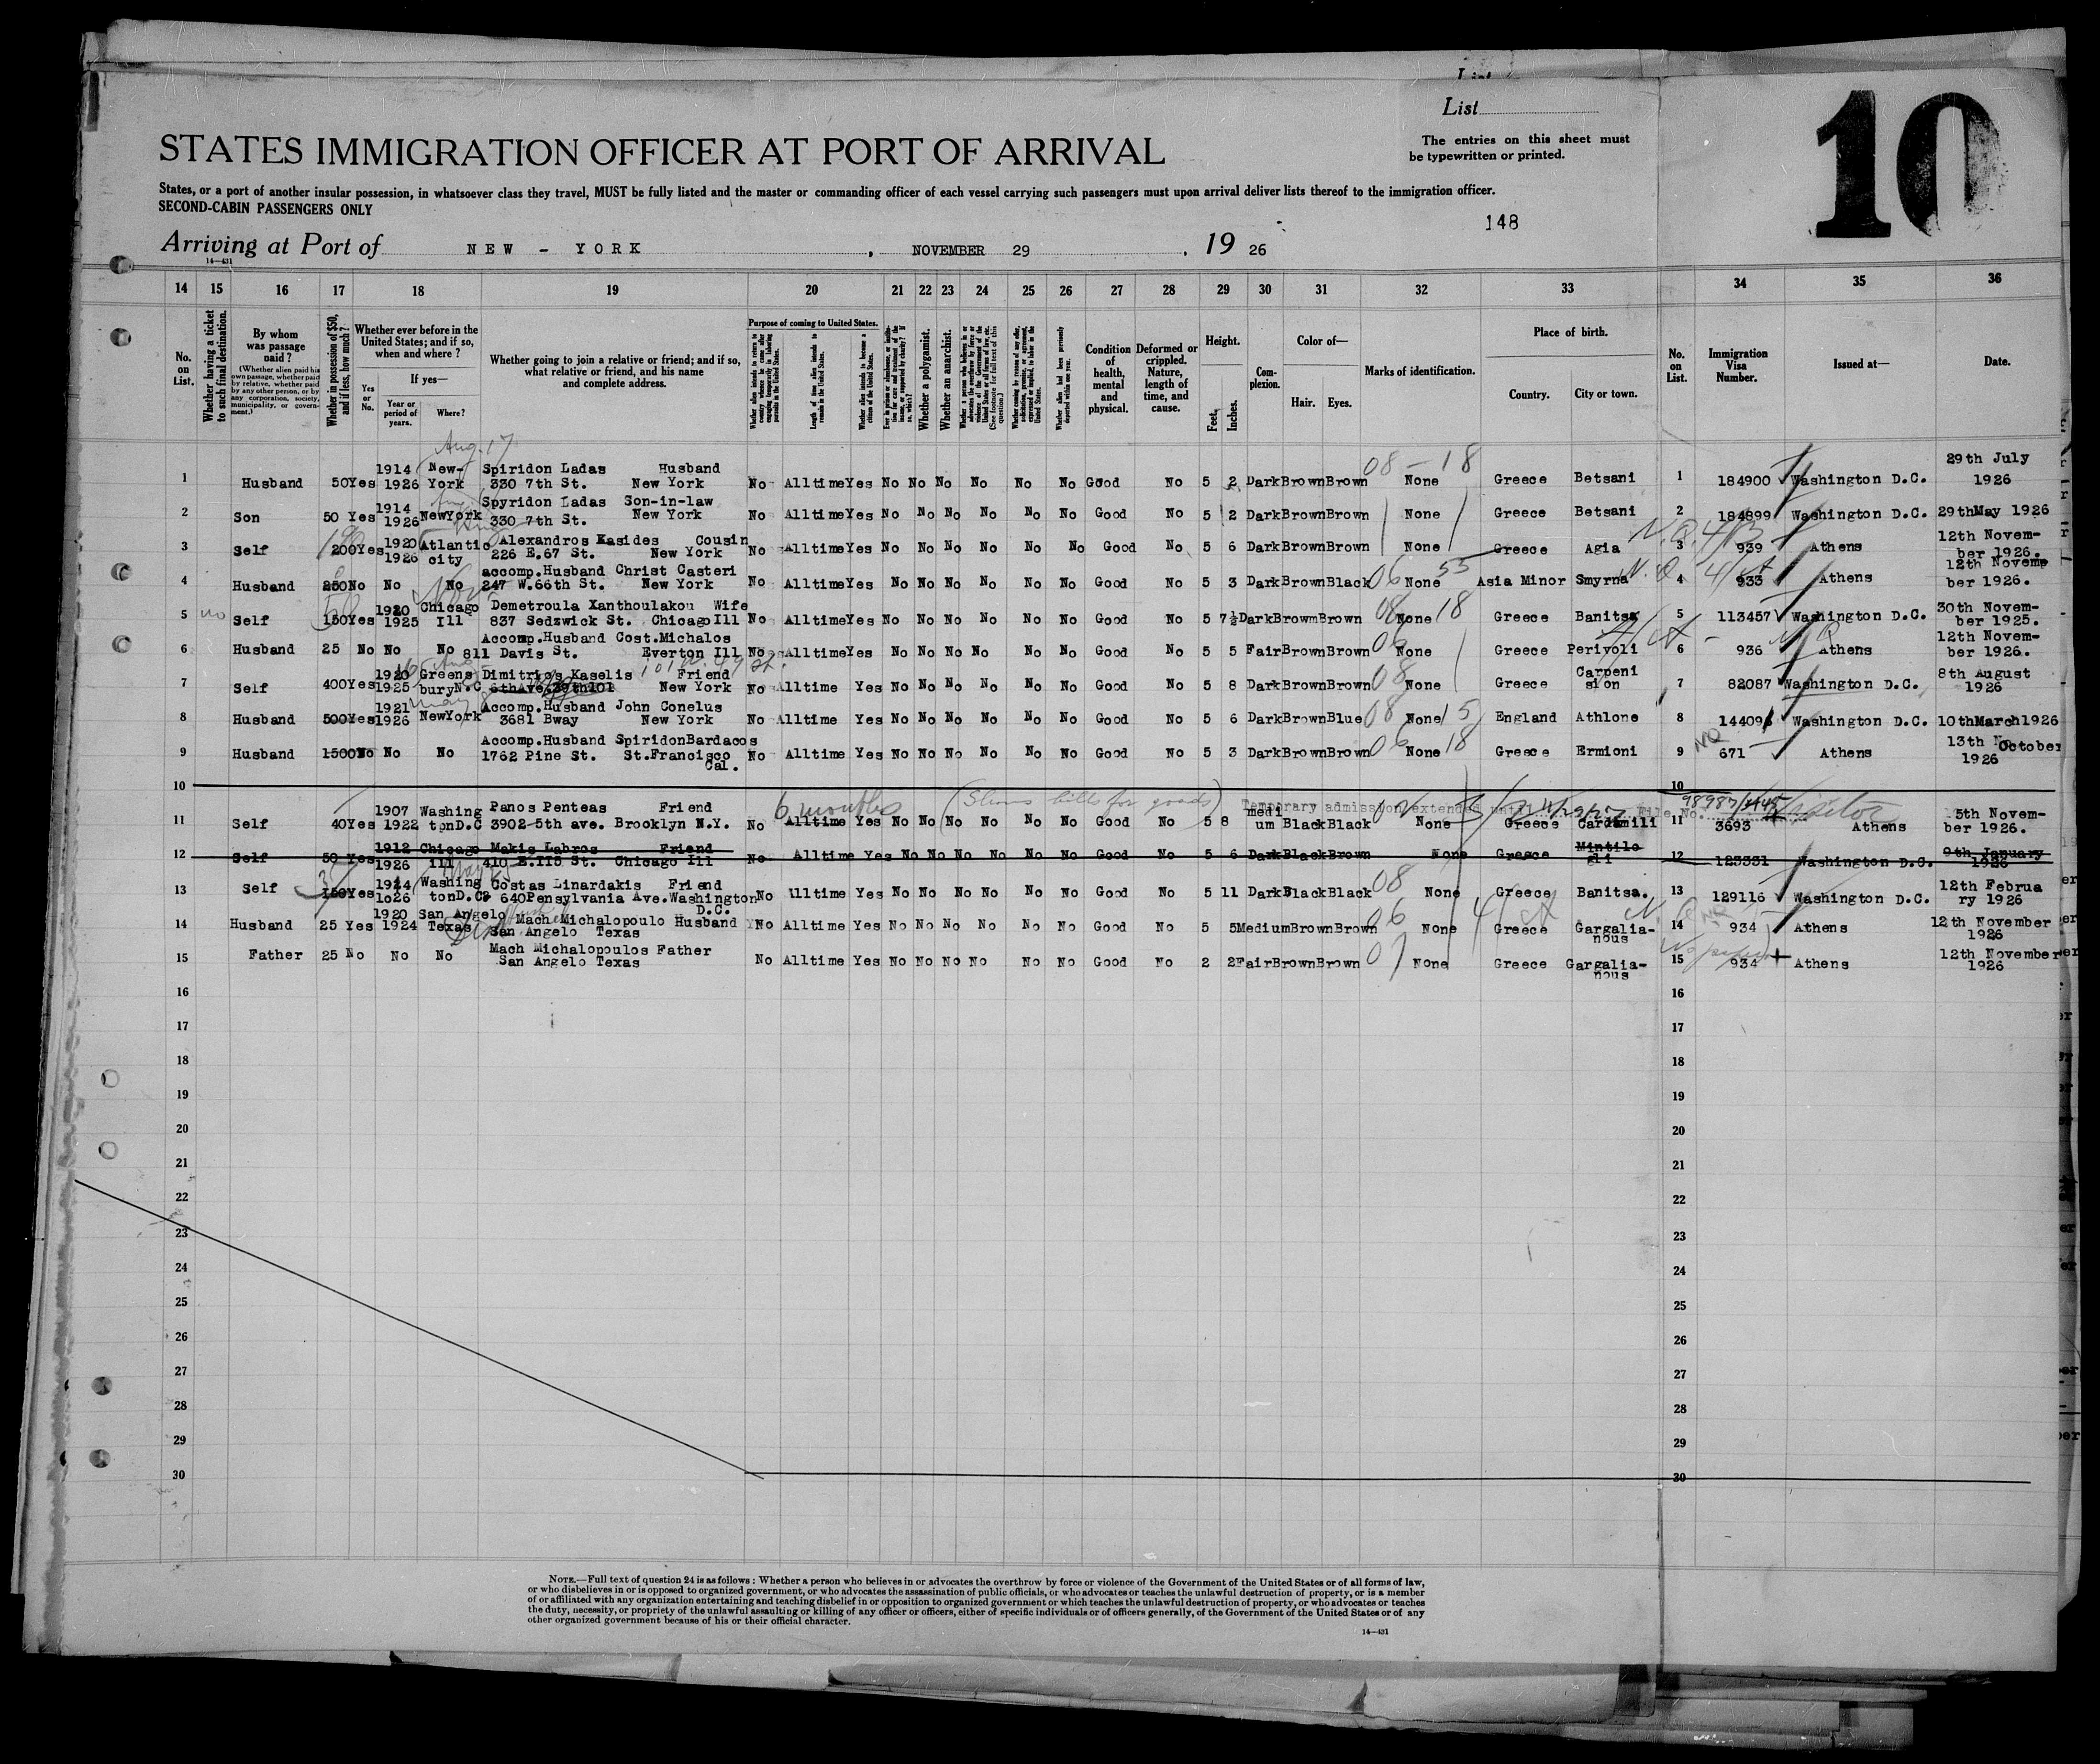 List
List
The entries on this sheet must
be typewritten or printed.
10
STATES IMMIGRATION OFFICER AT PORT OF ARRIVAL
States, or a port of another insular possession, in whatsoever class they travel, MUST be fully listed and the master or commanding officer of each vessel carrying such passengers must upon arrival deliver lists thereof to the immigration officer.
SECOND-CABIN PASSENGERS ONLY
148
Arriving at Port of NEW - YORK , NOVEMBER 29 , 19 26
14—431
14 15 16 17 18 19 20 21 22 23 24 25 26 27 28 29 30 31 32 33 34 35 36
No. on List.
Whether having a ticket to such final destination.
By whom was passage paid?
(Whether alien paid his own passage, whether paid by relative, whether paid by any other person, or by any corporation, society, municipality, or government.)
Whether in possession of $50, and if less, how much?
Whether ever before in the United States; and if so, when and where?
Yes or No.
If yes—
Year or period of years.
Where?
Whether going to join a relative or friend; and if so, what relative or friend, and his name and complete address.
Purpose of coming to United States.
Length of time alien intends to remain in the United States.
Whether alien intends to become a citizen of the United States.
Whether a polygamist.
Whether an anarchist.
Whether alien had been previously deported within one year.
Condition of health, mental and physical.
Deformed or crippled. Nature, length of time, and cause.
Height.
Feet. Inches.
Complexion.
Color of—
Hair. Eyes.
Marks of identification.
Place of birth.
Country. City or town.
No. on List.
Immigration Visa Number.
Issued at—
Date.
Aug. 17
08 - 18
1914 New- Spiridon Ladas Husband 29th July
1 Husband 50 Yes 1926 York 330 7th St. New York No Alltime Yes No No No No No No Good No 5 2 Dark Brown Brown None Greece Betsani 1 184900 Washington D.C. 1926
1914 Spyridon Ladas Son-in-law
2 Son 50 Yes 1926 NewYork 330 7th St. New York No Alltime Yes No No No No No No Good No 5 2 Dark Brown Brown None Greece Betsani 2 184899 Washington D.C. 29thMay 1926
1920 Atlantic Alexandros Kasides Cousin 12th Novem-
3 Self 200 Yes 1926 city 226 E.67 St. New York No Alltime Yes No No No No No No Good No 5 6 Dark Brown Brown None Greece Agia 3 939 Athens ber 1926.
accomp.Husband Christ Casteri 12th Novem
4 Husband 250 No No No 247 W.66th St. New York No Alltime Yes No No No No No No Good No 5 3 Dark Brown Black None Asia Minor Smyrna 4 933 Athens ber 1926.
06 55
1920 Chicago Demetroula Xanthoulakou Wife 30th Novem-
5 no Self 150 Yes 1925 Ill 837 Sedzwick St. Chicago Ill No Alltime Yes No No No No No No Good No 5 7½ Dark Browm Brown None Greece Banitsa 5 113457 Washington D.C. ber 1925.
08 18
Accomp.Husband Cost.Michalos 12th Novem-
6 Husband 25 No No No 811 Davis St. Everton Ill No Alltime Yes No No No No No No Good No 5 5 Fair Brown Brown None Greece Perivoli 6 936 Athens ber 1926.
06
101 W. 49 St.
1920 Greens Dimitrios Kaselis Friend Carpeni 8th August
7 Self 400 Yes 1925 buryN.C 6thAve. New York No Alltime Yes No No No No No No Good No 5 8 Dark Brown Brown None Greece sion 7 82087 Washington D.C. 1926
08
1921 Accomp.Husband John Conelus
8 Husband 500 Yes 1926 NewYork 3681 Bway New York No Alltime Yes No No No No No No Good No 5 6 Dark Brown Blue None England Athlone 8 144096 Washington D.C. 10thMarch1926
08 15
Accomp.Husband SpiridonBardacos 13th October
9 Husband 1500 No No No 1762 Pine St. St.Francisco Cal. No Alltime Yes No No No No No No Good No 5 3 Dark Brown Brown None Greece Ermioni 9 671 Athens 1926
06 18
10 10
6 months (Shows bills for goods) Temporary admission extended until File No. Visitor
1907 Washing Panos Penteas Friend medi 5th Novem-
11 Self 40 Yes 1922 tonD.C 3902-5th ave. Brooklyn N.Y. No Alltime Yes No No No No No No Good No 5 8 um Black Black None Greece Cardamili 11 3693 Athens ber 1926.
1912 Chicago Makis Labros Friend Mintilo 9th January
12 Self 50 Yes 1926 Ill 410 E.115 St. Chicago Ill No Alltime Yes No No No No No No Good No 5 6 Dark Black Brown None Greece gli 12 123331 Washington D.C. 1926
1924 Washing Costas Linardakis Friend 12th Februa
13 Self 150 Yes 1o26 tonD.C. 640Pensylvania Ave.Washington D.C. No Alltime Yes No No No No No No Good No 5 11 Dark Black Black None Greece Banitsa. 13 129116 Washington D.C. ry 1926
08
1920 San Angelo Mach Michalopoulo Husband
14 Husband 25 Yes 1924 Texas San Angelo Texas No Alltime Yes No No No No No No Good No 5 5 Medium Brown Brown None Greece Gargalia-nous 14 934 Athens 12th November 1926
06
Mach Michalopoulos Father
15 Father 25 No No No San Angelo Texas No Alltime Yes No No No No No No Good No 2 2 Fair Brown Brown None Greece Gargalia-nous 15 934 Athens 12th November 1926
07
16 16
17 17
18 18
19 19
20 20
21 21
22 22
23 23
24 24
25 25
26 26
27 27
28 28
29 29
30 30
NOTE.—Full text of question 24 is as follows: Whether a person who believes in or advocates the overthrow by force or violence of the Government of the United States or of all forms of law,
or who disbelieves in or is opposed to organized government, or who advocates the assassination of public officials, or who advocates or teaches the unlawful destruction of property, or is a member
of or affiliated with any organization entertaining and teaching disbelief in or opposition to organized government or which teaches the unlawful destruction of property, or who advocates or teaches
the duty, necessity, or propriety of the unlawful assaulting or killing of any officer or officers, either of specific individuals or of officers generally, of the Government of the United States or of any
other organized government because of his or their official character.
14—431